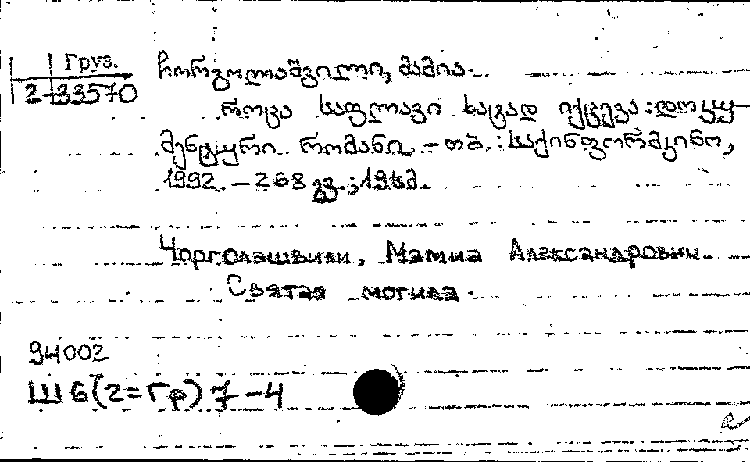 Груз.
2-33570
ჩორგოლაშვილი, მამია.
როცა საფლავი ხატად იქცევა: დოკუ-
მენტური რომანი. - თბ.: საქინფორმკინო,
1992. - 268 გვ.; 19სმ.
Чорголашвили, Мамиа Александрович.
Святая могила.
94002
Ш6(2=Гр)7-4